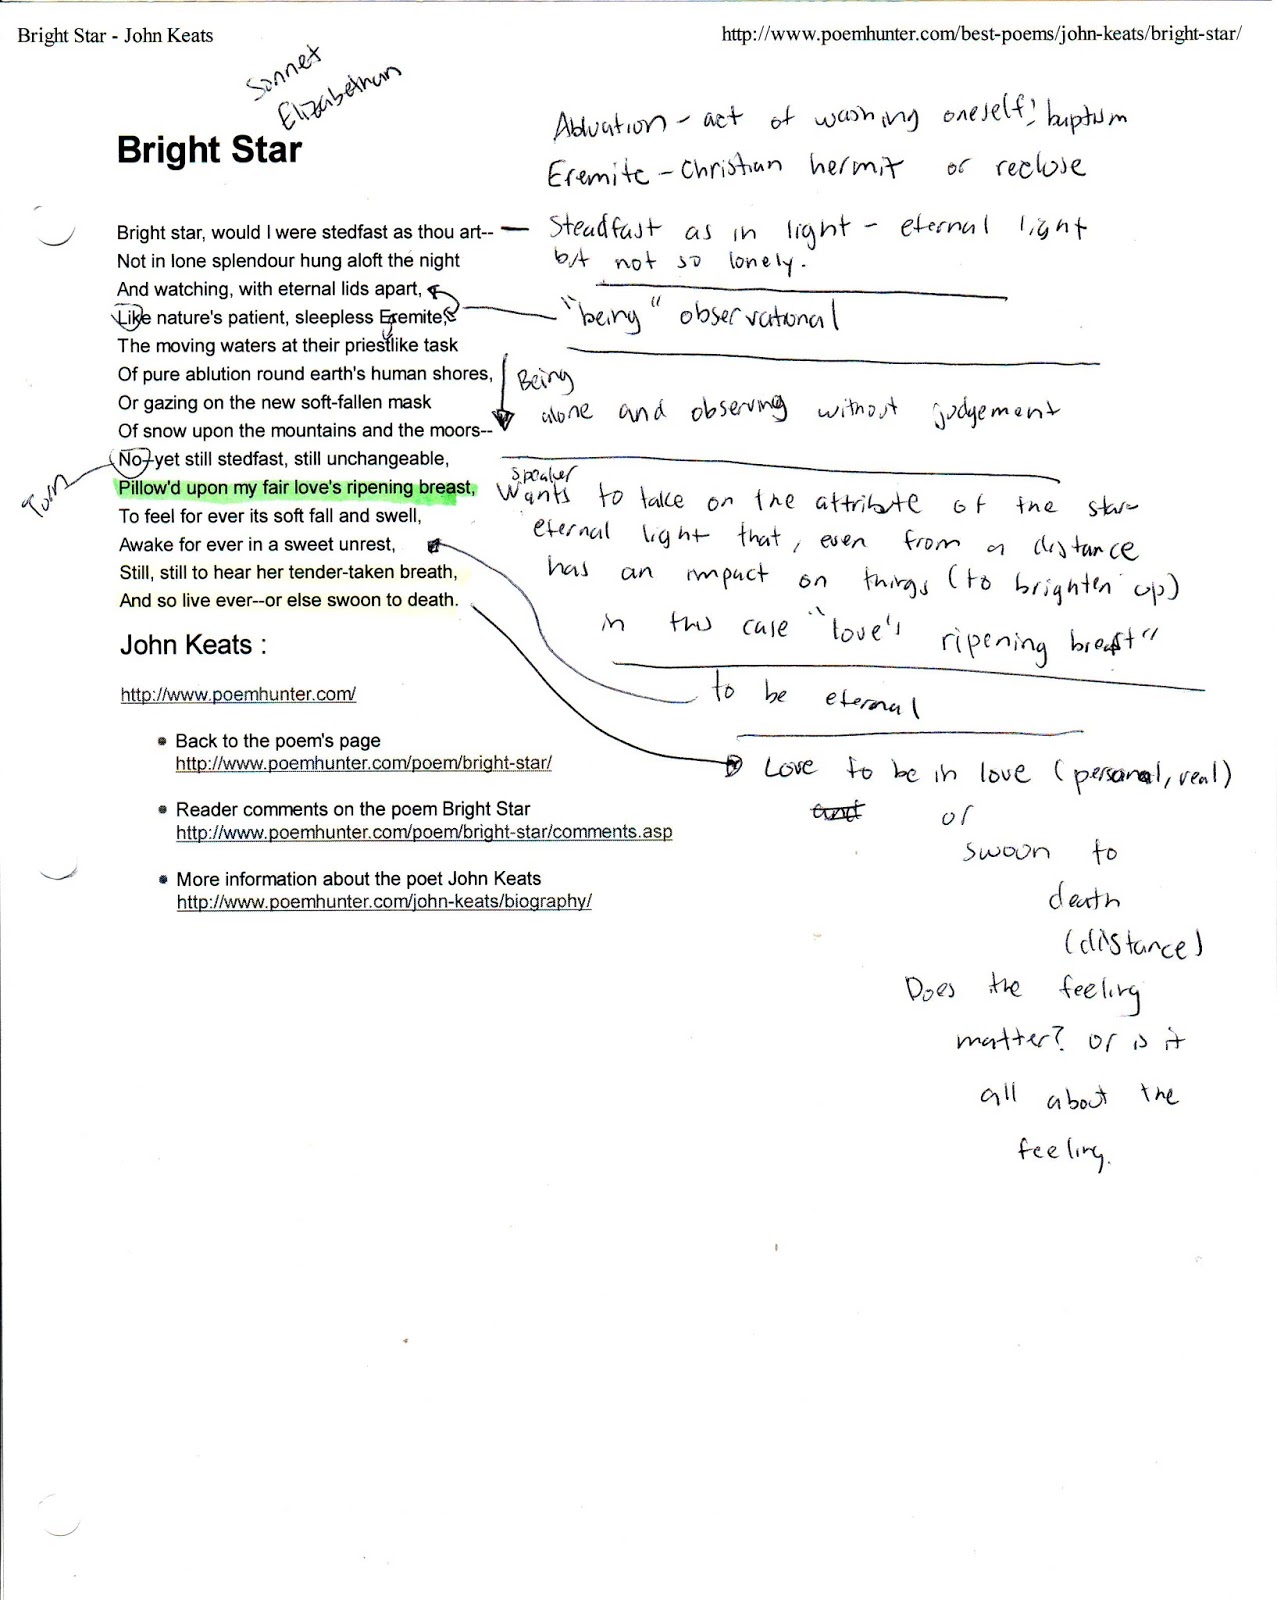 Bright Star - John Keats
http://www.poemhunter.com/best-poems/john-keats/bright-star/
Sonnet
Elizabethan
Abluation - act of washing oneself; baptism
Eremite - Christian hermit or reclose
Bright Star
Bright star, would I were stedfast as thou art--
Not in lone splendour hung aloft the night
And watching, with eternal lids apart,
Like nature's patient, sleepless Eremite,
The moving waters at their priestlike task
Of pure ablution round earth's human shores,
Or gazing on the new soft-fallen mask
Of snow upon the mountains and the moors--
No--yet still stedfast, still unchangeable,
Pillow'd upon my fair love's ripening breast,
To feel for ever its soft fall and swell,
Awake for ever in a sweet unrest,
Still, still to hear her tender-taken breath,
And so live ever--or else swoon to death.
Steadfast as in light - eternal light
but not so lonely.
"being" observational
Being
alone and observing without judgement
Turn
Speaker
Wants to take on the attribute of the star
eternal light that, even from a distance
has an impact on things (to brighten up)
in this case "love's ripening breast"
to be eternal
Love to be in love (personal, real)
and or
swoon to
death
(distance)
Does the feeling
matter? or is it
all about the
feeling.
John Keats :
http://www.poemhunter.com/
• Back to the poem's page
http://www.poemhunter.com/poem/bright-star/
• Reader comments on the poem Bright Star
http://www.poemhunter.com/poem/bright-star/comments.asp
• More information about the poet John Keats
http://www.poemhunter.com/john-keats/biography/